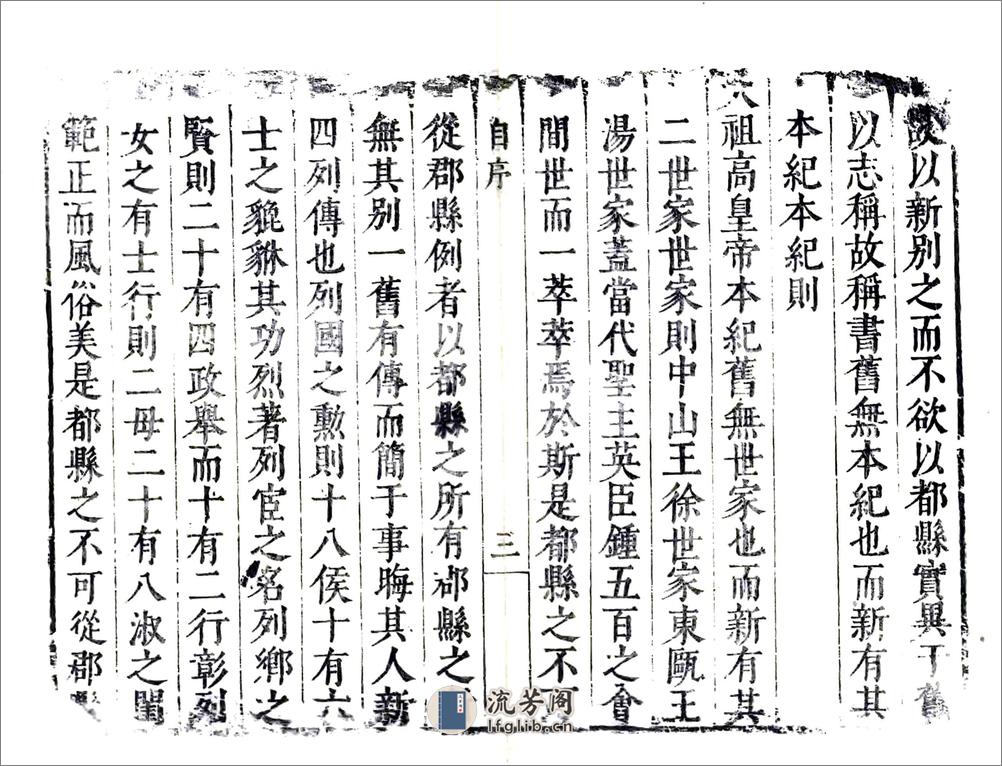 故以新别之而不欲以都縣實異于舊
以志稱故稱書舊無本紀也而新有其
本紀本紀則
祖高皇帝本紀舊無世家也而新有其
二世家世家則中山王徐世家東甌王
湯世家蓋當代聖主英臣鍾五百之會
間世而一萃萃焉於斯是都縣之不可
自序
三
從郡縣例者以都縣之所有郡縣之
無其别一舊有傳而簡于事晦其人新
四列傳也列國之勲則十八侯十有六
士之貔貅其功烈著列宦之名列鄉之
賢則二十有四政舉而十有二行彰列
女之有士行則二母二十有八淑之閨
範正而風俗美是都縣之不可從郡
流芳阁
lfglib.cn